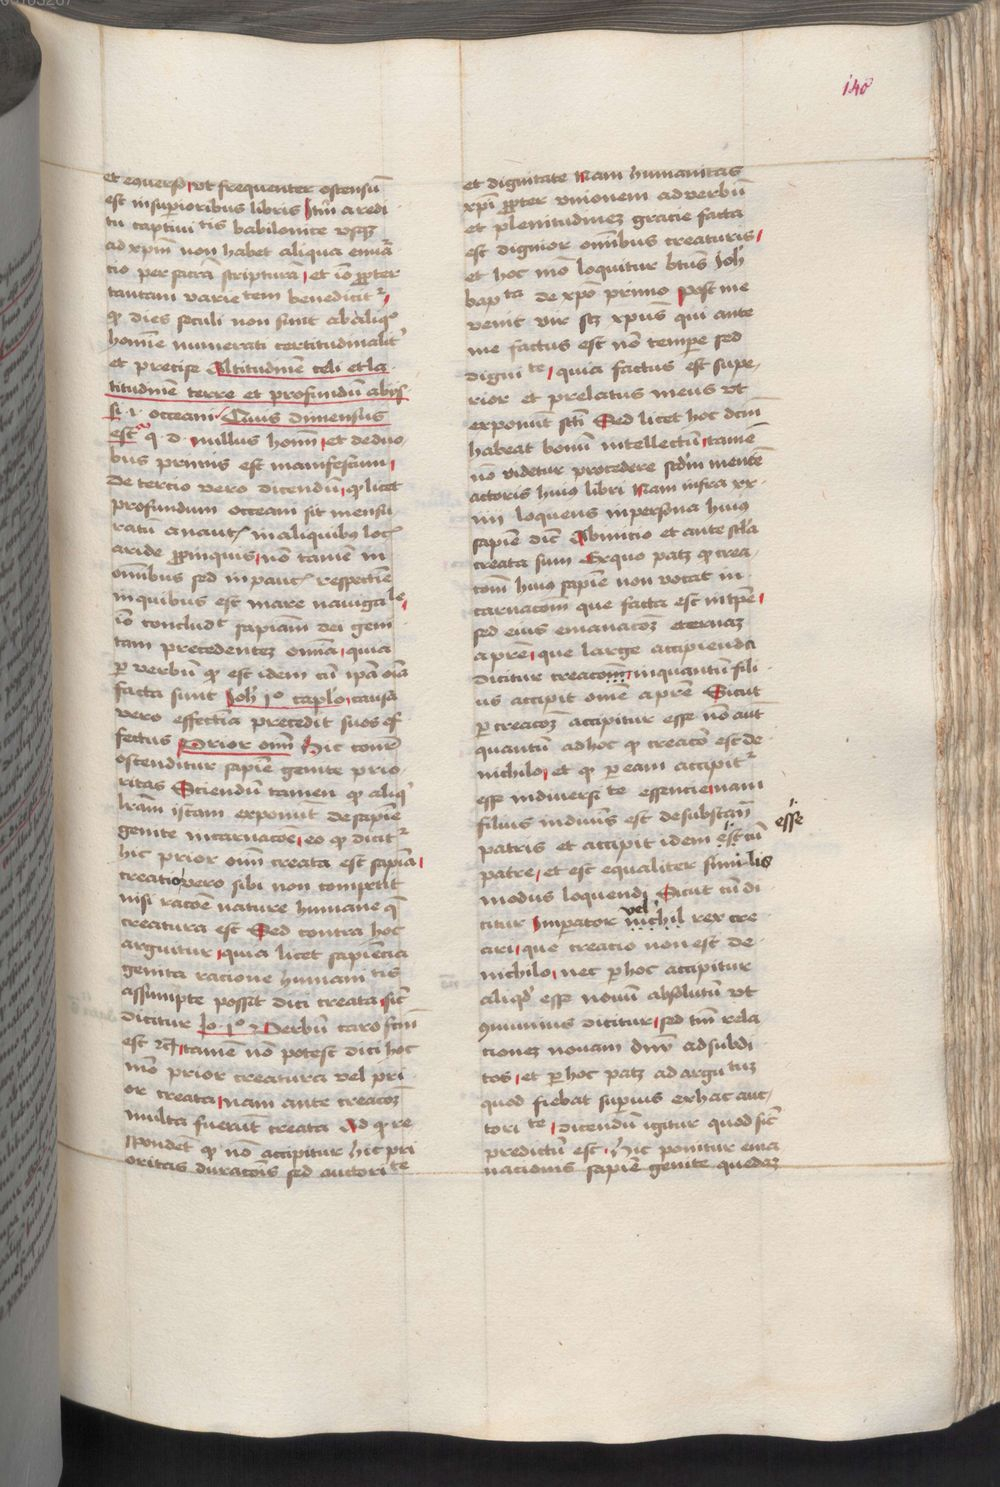 148
et ꝯuerso, vt frequenter ostensū
est in superioribus libris Itm̄ a redi
tu captiuitatis babilonice vsqꝫ
ad xpm̄ non habet aliqua enūa
cio per sacrā scripturā, et iō ꝓpter
tantam varietem benedicit͛,
ꝙ dies seculi non sunt ab aliqͦ
homīe numerati certitudinalit͛
et precise Altitudinē celi et la
titudinē terre et profundū abys
si .i. occeani Quis dimensus
est q. d. nullus homī, et de duo
bus primis est manifestum,
de tercio vero dicendū, ꝙ licet
profundum occeani sit mensu
ratū a naut͛ in aliquibus loc͛
aride ꝓpinquis, nō tamē in
omībus sed in pauc͛ respectiē
in quibus est mare nauigale,
iō concludᵗ sapiām dei geni
tam precedentez omīa, quia
ꝑ verbū ꝙ est idem cū ipā oīa
facta sunt Joh̄ 1º caplo, causa
vero effectiā precedit suos ef
fectus Prior omī Hic conr̄
ostenditur sapiē genite prio
ritas Sciendū tamen ꝙ aliqͥ
lr̄am istam exponūt de sapiē
genite incarnacoē, eo ꝙ dicit͛
hic prior omī creata est sapiā,
creatio vero sibi non competit
nisi racoē nature humane q̄
creatura est Sed contra hoc
arguitur, quia licet sapiencia
genita racione humanitatis
assumpte posset dici creata, sic̄
dicitur Jo. 1º Verbū caro fctm̄
est rc̄, tamē nō potest dici hoc
mō prior creatura vel pri
or creata, nam ante creacoꝫ
multa fuerūt creata Ad ꝙ re
spondet ꝙ nō accipitur hic pri
oritas duracois sed auctorite
et dignitate Nam humanitas
xpi ꝓpter vnionem ad verbū
et plenitudinez gracie facta
est dignior omībus creaturis,
et hoc mō loquitur btūs Joh̄
bapta de xpō primo Post me
venit vir scꝫ xpūs qui ante
me factus est nō tempore sed
dignite, quia factus est supe
rior et prelatus meus vt
exponunt scī Sed licet hoc dcm̄
habeat bonū intellectū, tamē
nō videtur procedere sedm̄ mentē
actoris huiꝰ libri Nam infra xx
iiii loquens in persona huiꝰ
sapiē dic̄ Ab inicio et ante scl̄a
creata sum Ex quo patꝫ ꝙ crea
tom̄ huiꝰ sapiē non vocat in
carnacom̄ que facta est in tp̄e,
sed eius emanacoꝫ eternaꝫ
a pr̄e, que large accipienda
dicitur creacom̄, inquantū fili
us accipit omē a pr̄e Sicut
ꝑ creacoꝫ accipitur esse nō aut̄
quantū ad hoc ꝙ creaco͛ est de
nichilo, et ꝙ ꝑ eam accipit͛
esse in diuersite essencie, nam
filius in diuinis est de substan̄
patris et accipit idem est cū esse
patre, et est equaliter similis
modus loquendi Sicut cū di
citur Imperator nichil vel rex cre
ari, que creacio non est de
nichilo, nec ꝑ hoc accipitur
aliqd̄ esse nouū absolutū vt
ꝯmunius dicitur, sed tm̄ rela
cionez nouam dnī ad subdi
tos, et ꝑ hoc patꝫ ad argutuꝫ
quod fiebat superius ex hac auc
torite, dicendū igitur quod sic̄
predictū est, hic ponitur ema
nacionis sapiē genite quedaꝫ